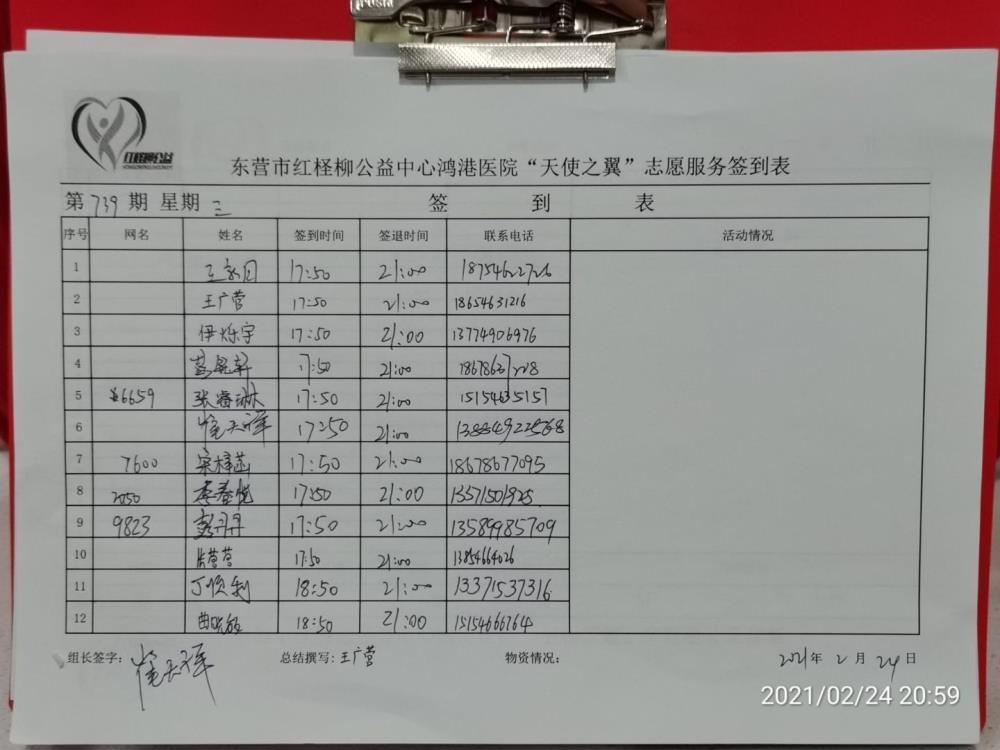 PUSH
红柽柳公益
东营市红柽柳公益中心鸿港医院“天使之翼”志愿服务签到表
第 739 期 星期 三 签 到 表
序号 网名 姓名 签到时间 签退时间 联系电话 活动情况
1 17:50 21:00 18754622726
2 王广营 17:50 21:00 18654631216
3 伊烁宇 17:50 21:00 13774906976
4 17:50 21:00
5 张睿琳 17:50 21:00 15154635157
6 崔天祥 17:50 21:00
7 7600 宋梓菡 17:50 21:00 18678677095
8 2050 李春悦 17:50 21:00 13571501925
9 9823 彭丹丹 17:50 21:00 13589985709
10 营营 17:50 21:00 13854664026
11 丁顺利 18:50 21:00 13371537316
12 曲晓敏 18:50 21:00 15154666764
组长签字: 崔天祥 总结撰写: 王广营 物资情况: 2021 年 2 月 24 日
2021/02/24 20:59